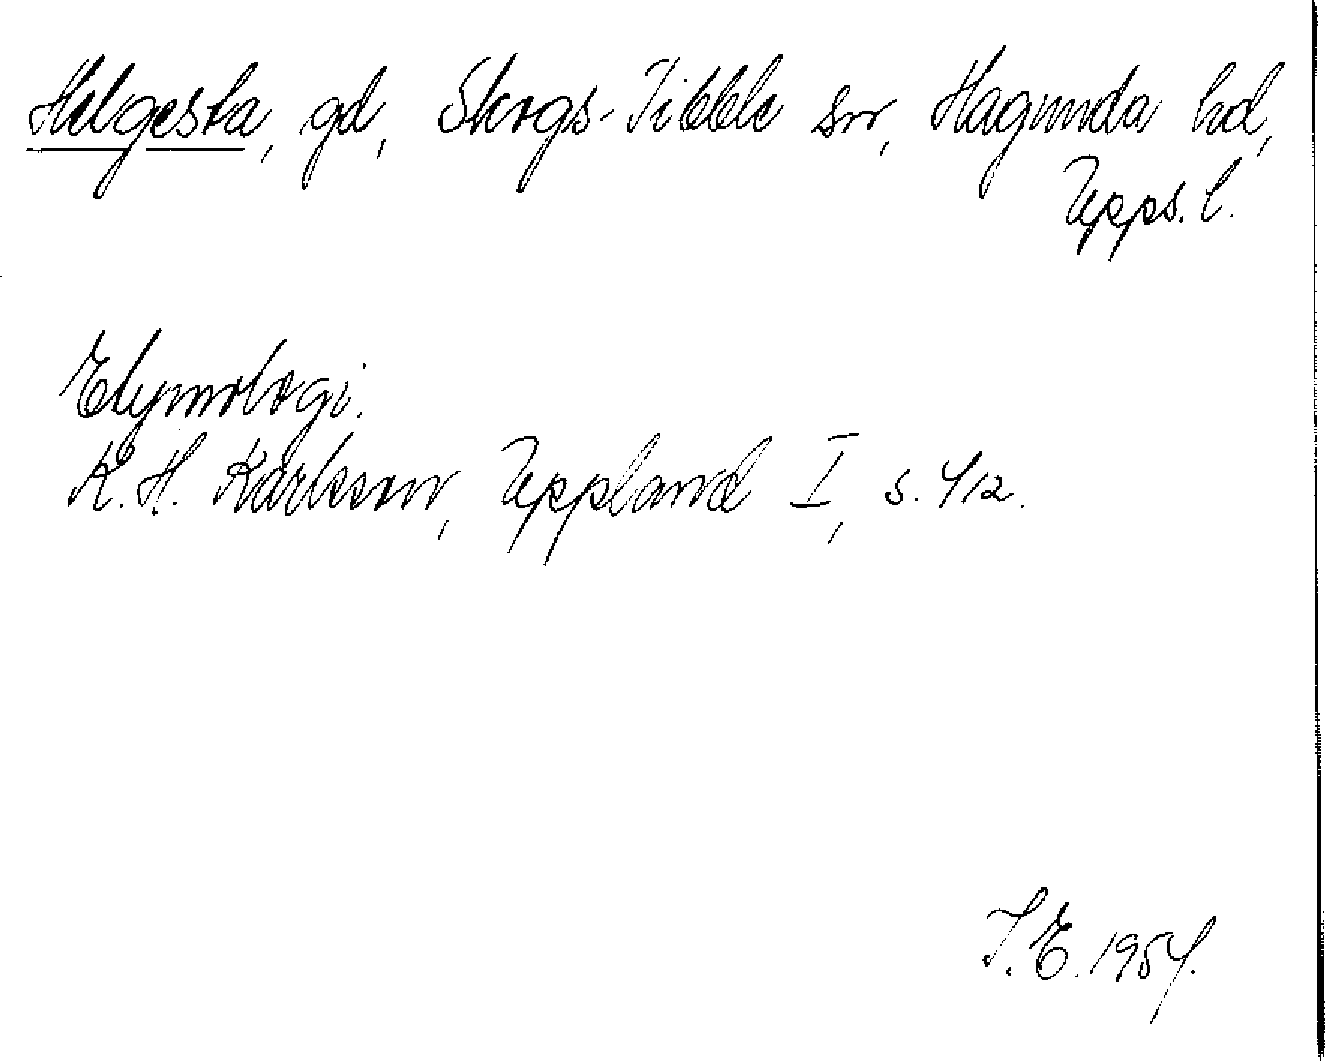 Helgesta, gd, Skogs-Tibble sn, Hagunda hd,
Upps. l.
Etymologi.
K. H. Karlsson, Uppland I, s. 412.
T. E. 1954.